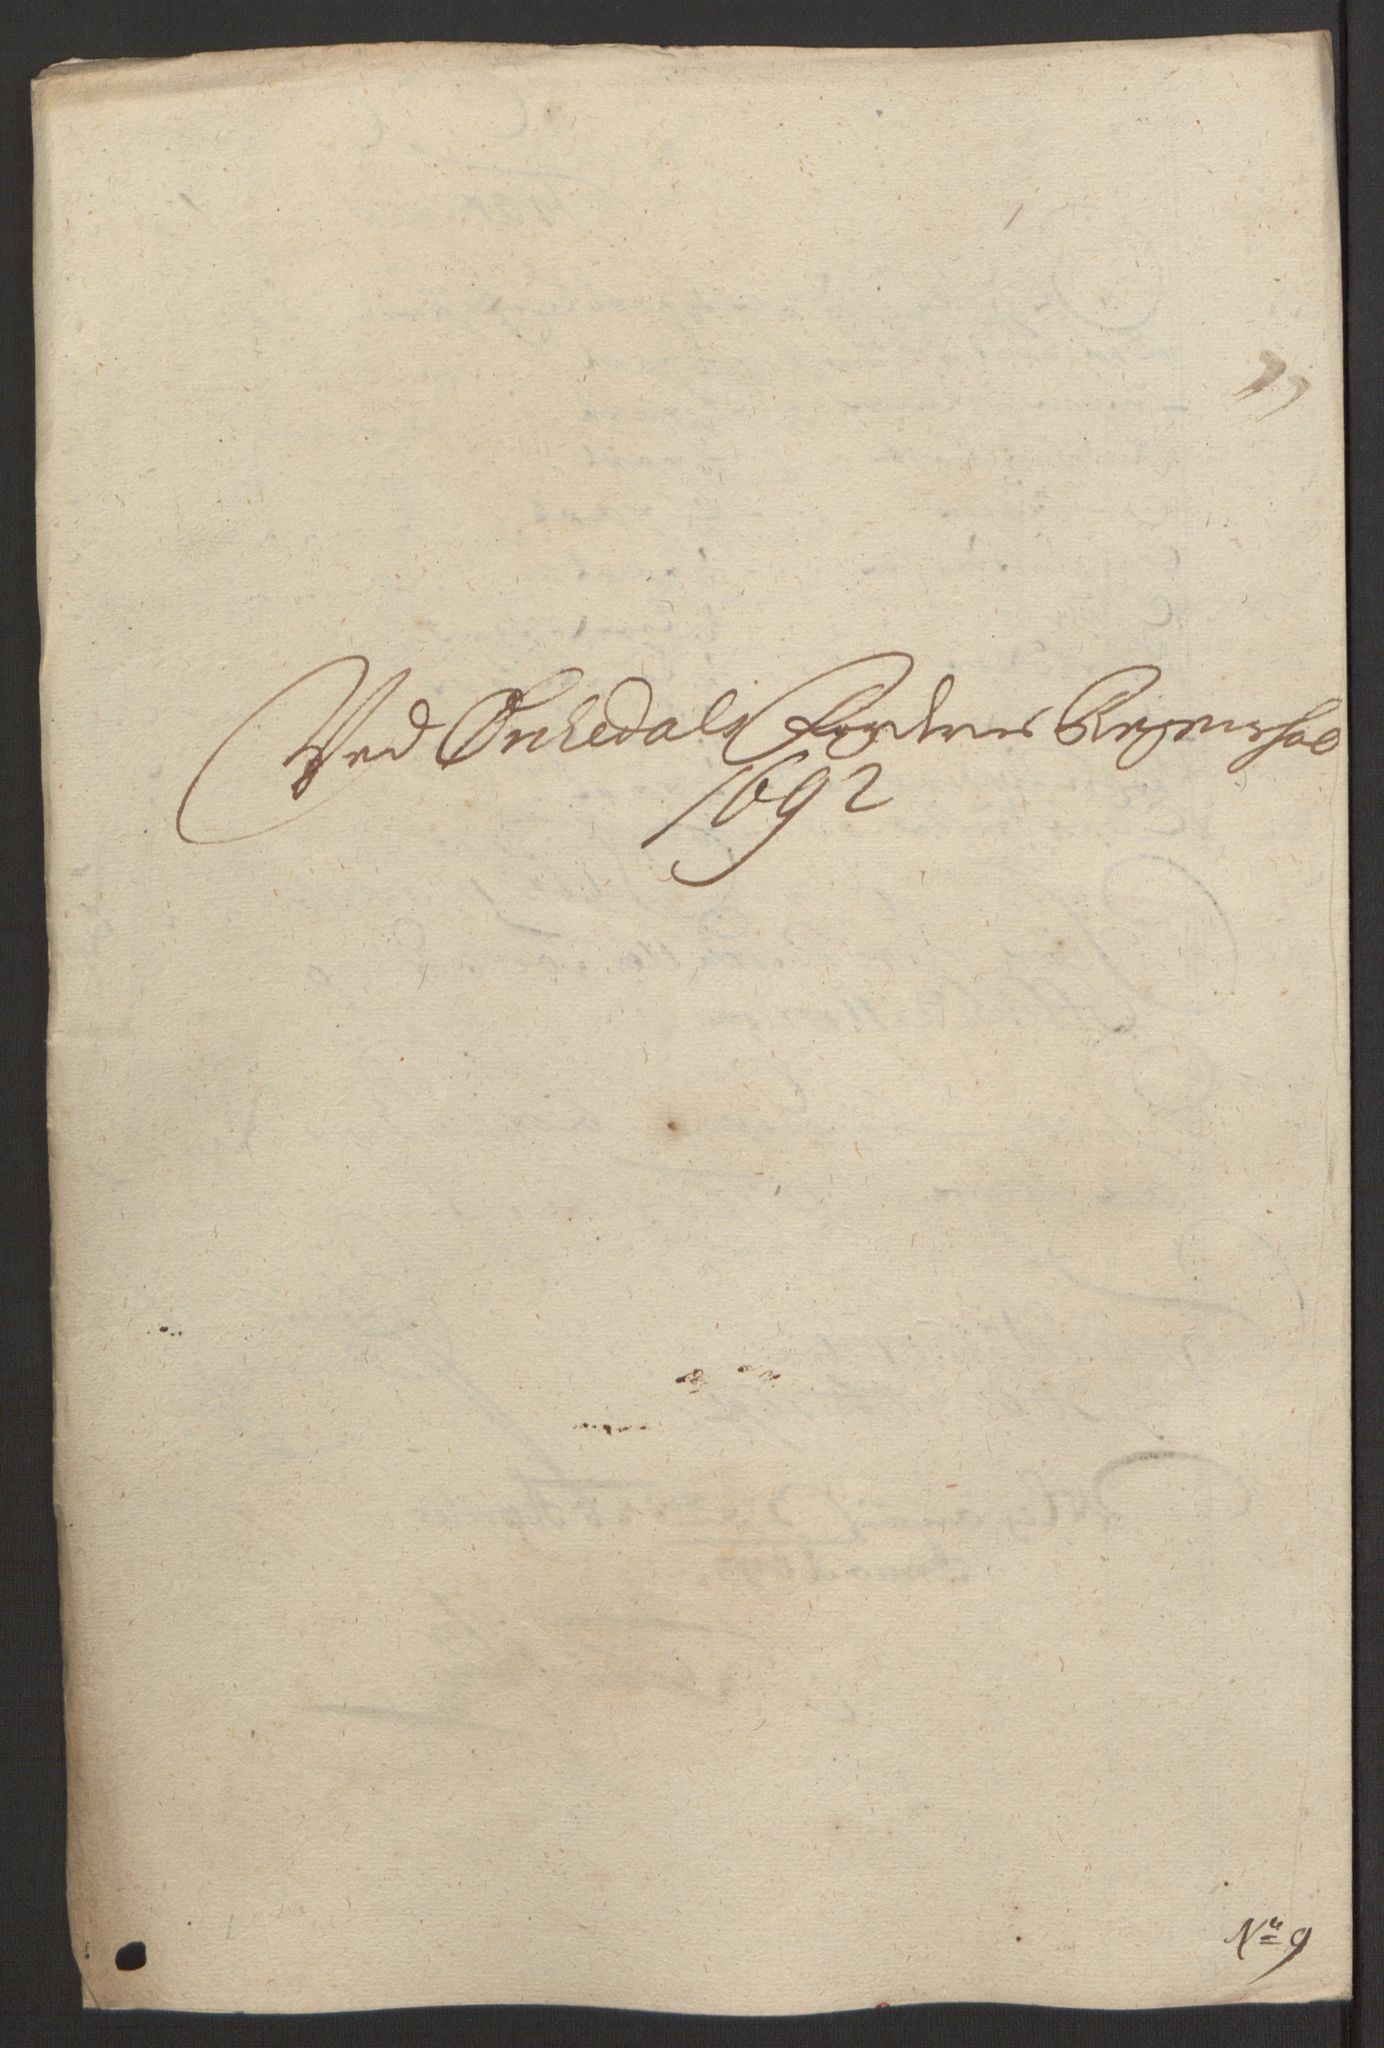 Ved Ørkedals Fogderies Regenskab
1692
No 9